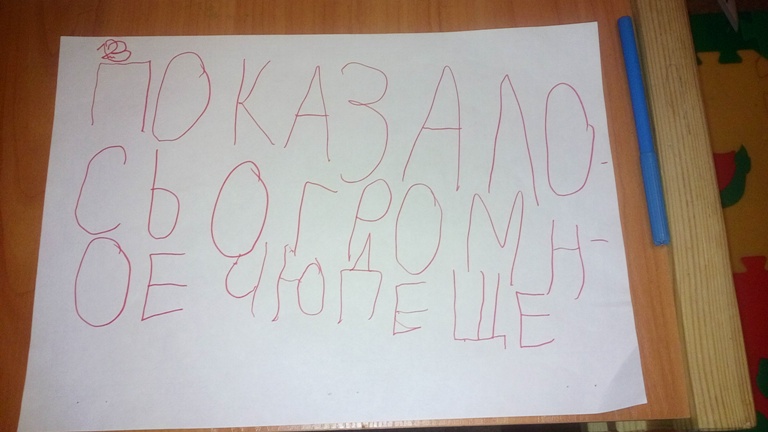 ПОКАЗАЛО-
СЬ ОГРОМН-
ОЕ ЧЮДЕЩЕ